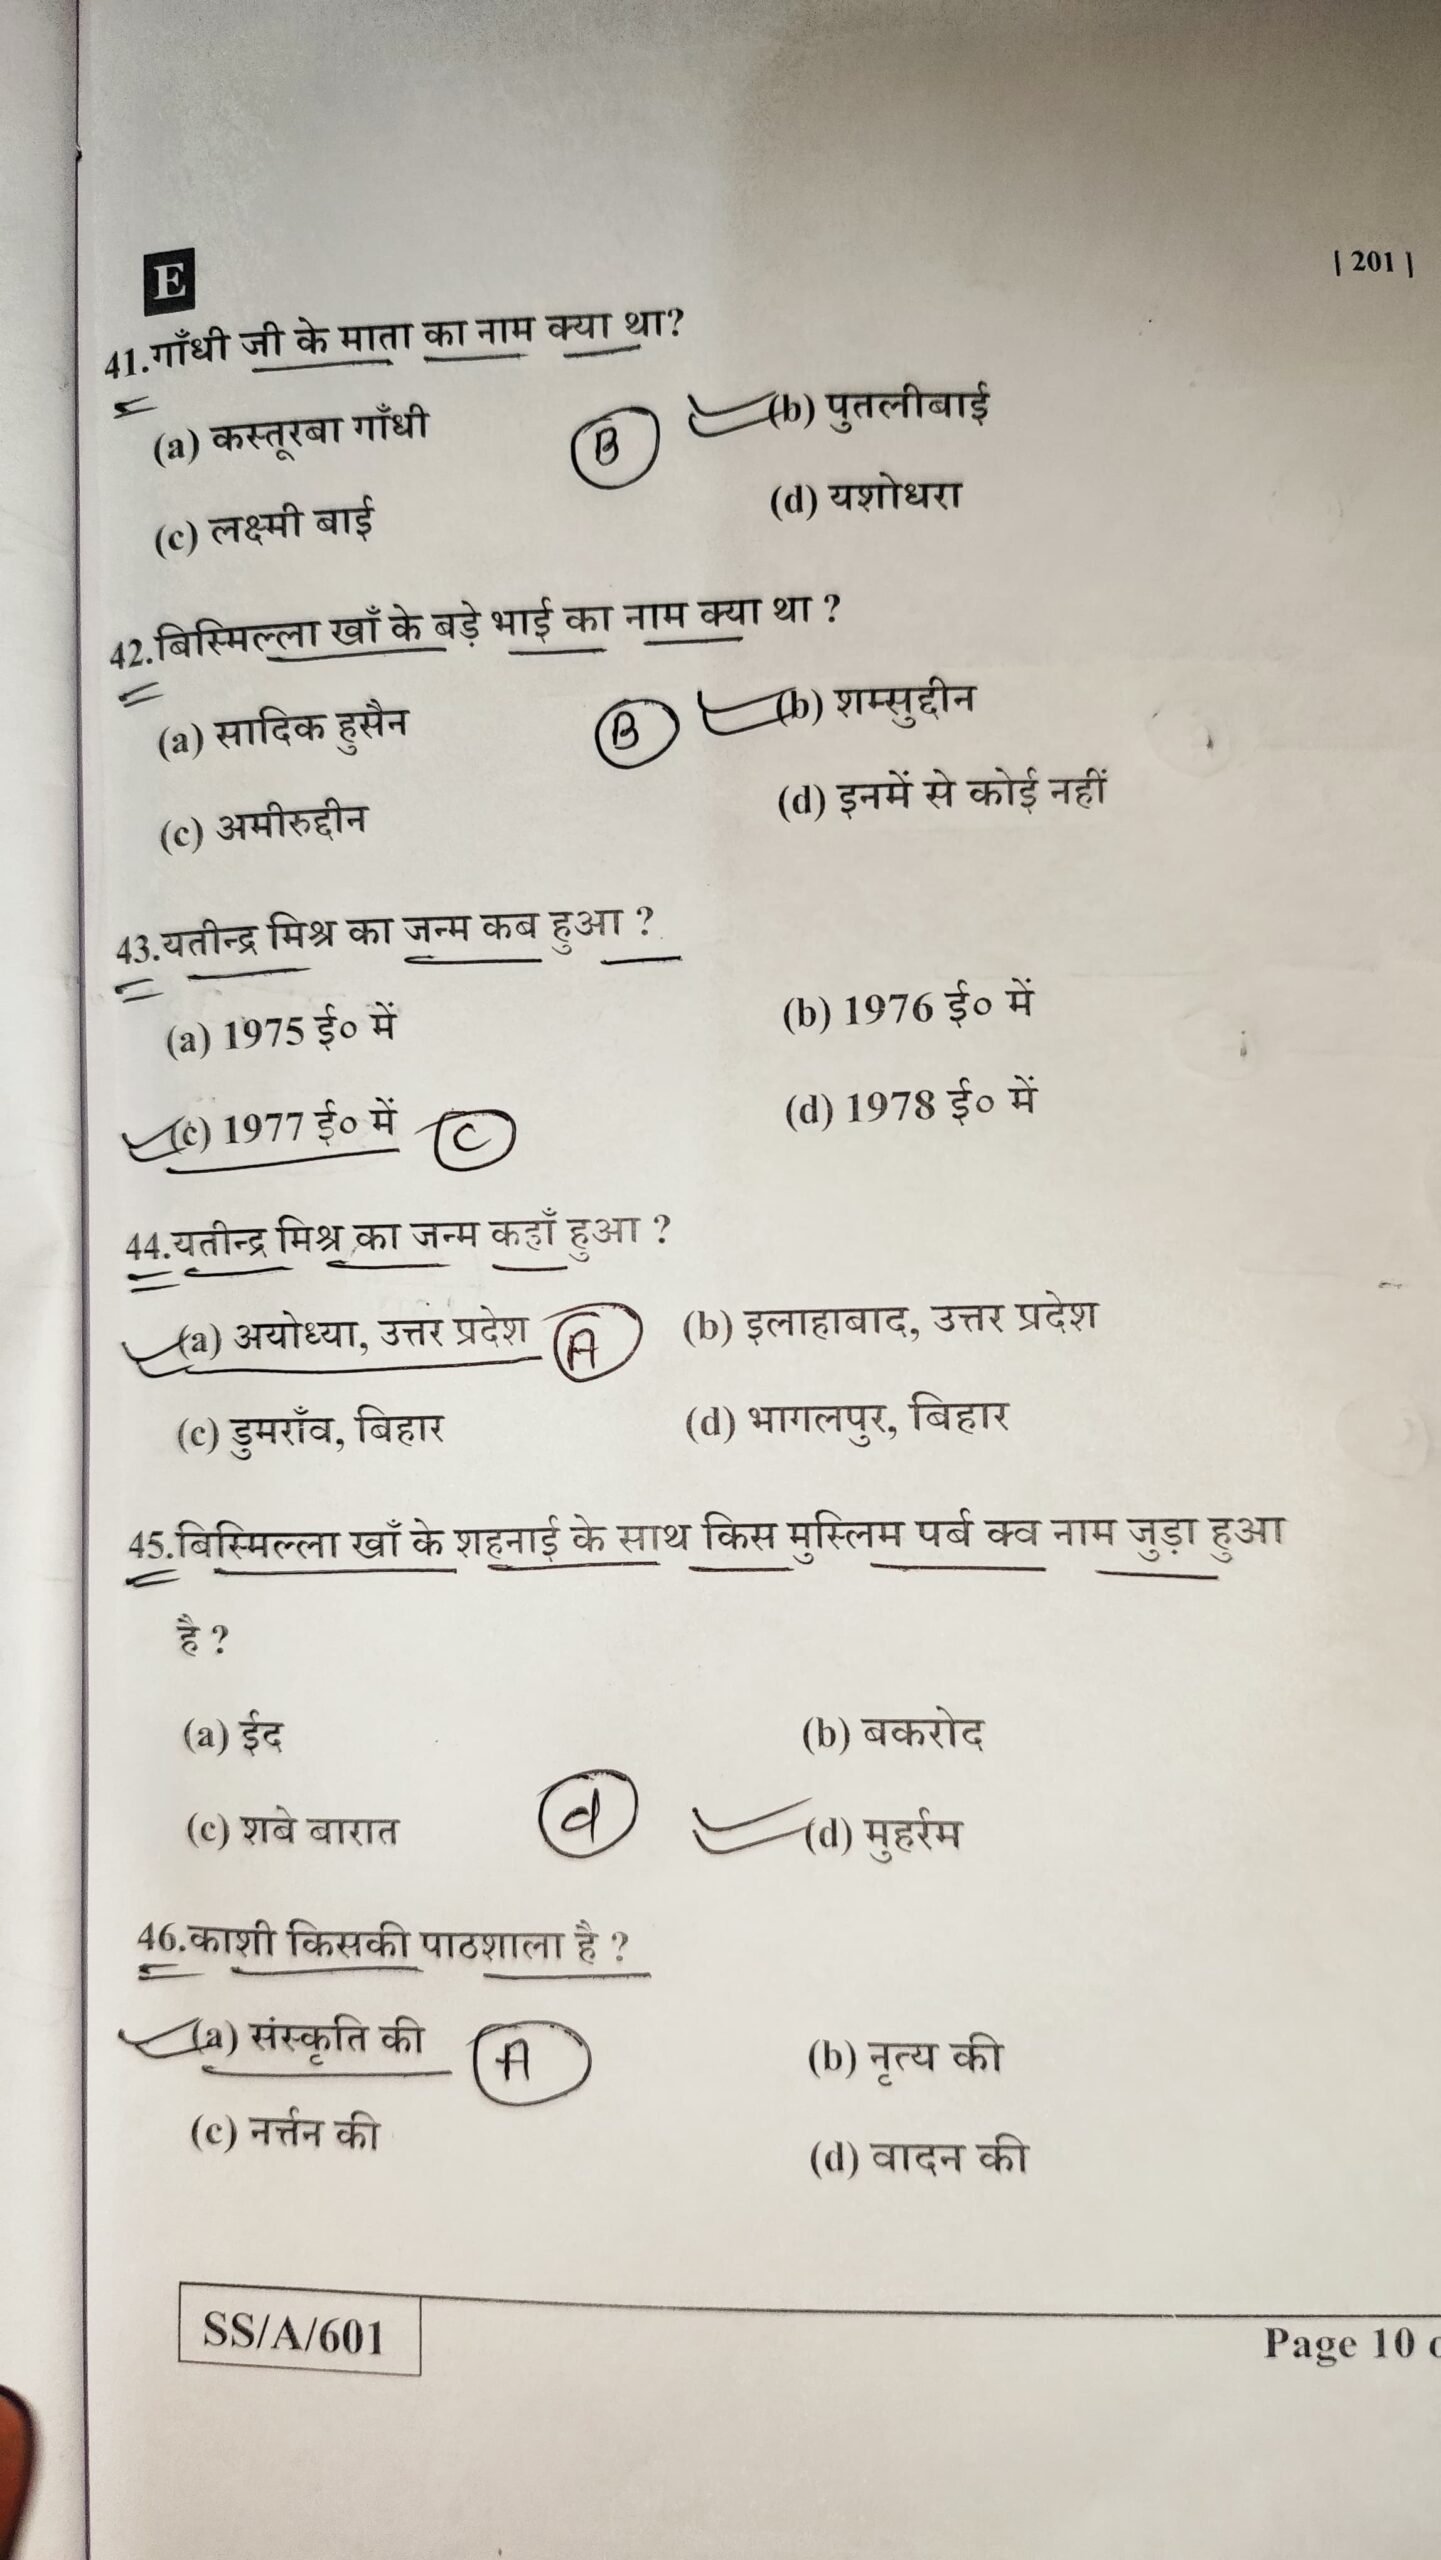 E
| 201 |
41.गाँधी जी के माता का नाम क्या था?
(a) कस्तूरबा गाँधी (b) पुतलीबाई
B
(c) लक्ष्मी बाई (d) यशोधरा
42.बिस्मिल्ला खाँ के बड़े भाई का नाम क्या था ?
(a) सादिक हुसैन (b) शम्सुद्दीन
B
(c) अमीरुद्दीन (d) इनमें से कोई नहीं
43.यतीन्द्र मिश्र का जन्म कब हुआ ?
(a) 1975 ई० में (b) 1976 ई० में
(c) 1977 ई० में C (d) 1978 ई० में
44.यतीन्द्र मिश्र का जन्म कहाँ हुआ ?
(a) अयोध्या, उत्तर प्रदेश A (b) इलाहाबाद, उत्तर प्रदेश
(c) डुमराँव, बिहार (d) भागलपुर, बिहार
45.बिस्मिल्ला खाँ के शहनाई के साथ किस मुस्लिम पर्ब क्व नाम जुड़ा हुआ
है ?
(a) ईद (b) बकरोद
(c) शबे बारात d (d) मुहर्रम
46.काशी किसकी पाठशाला है ?
(a) संस्कृति की A (b) नृत्य की
(c) नर्त्तन की (d) वादन की
SS/A/601
Page 10